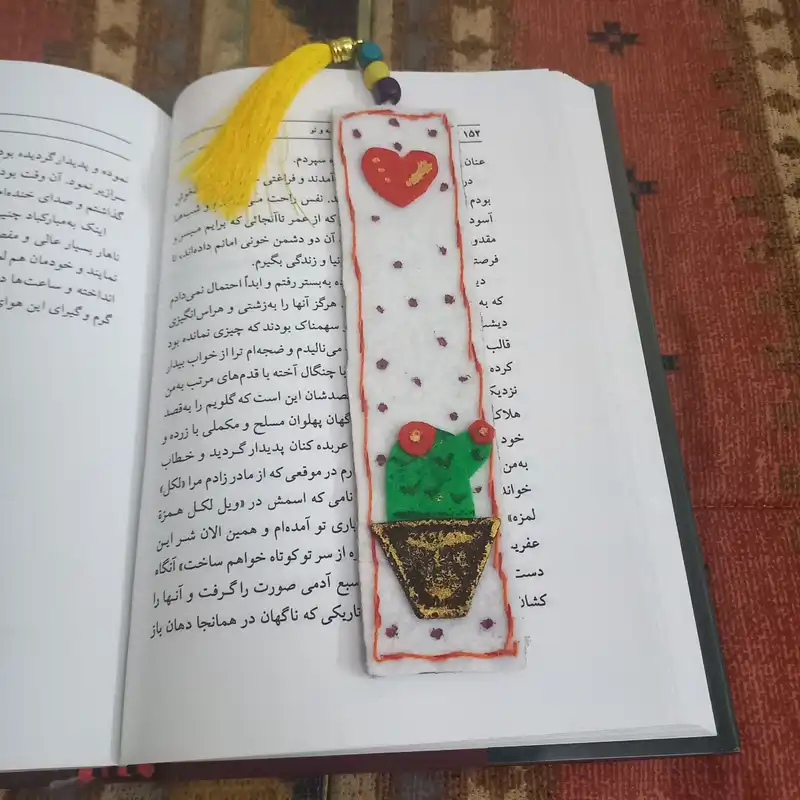 ۱۵۲ ه و تو
عنان ه سپردم.
در آمدند و فراغتی خوش
بودم د. نفس راحت می و شب‌ها
آسود که از عمر تاآنجائی که برایم میسر و
مقدو آن دو دشمن خونی امانم داده‌اند، تا
فرصت نیا و زندگی بگیرم.
دی ه به‌بستر رفتم و ابداً احتمال نمی‌دادم
که به هرگز آنها را به‌زشتی و هراس‌انگیزی
دیشب و سهمناک بودند که چیزی نمانده بود
قالب می‌نالیدم و ضجه‌ام ترا از خواب بیدار
کرده با چنگال آخته با قدم‌های مرتب به‌من
نزدیک قصدشان این است که گلویم را به‌قصد
هلاک گهان پهلوان مسلح و مکملی با زره و
خود عربده کنان پدیدار گردید و خطاب
به‌من ارم در موقعی که از مادر زادم مرا «لکل»
خواند نامی که اسمش در «ویل لکل همزة
لمزه» باری تو آمده‌ام و همین الان شر این
عفریت ه از سر تو کوتاه خواهم ساخت» آنگاه
دست سبع آدمی صورت را گرفت و آنها را
کشان تاریکی که ناگهان در همانجا دهان باز
نموده و پدیدار گردیده بود
سرازیر نمود. آن وقت بود
گذاشتم و صدای خنده‌ام
اینک به‌مبارکباد چنین
ناهار بسیار عالی و مفص
نمایند و خودمان هم لم
انداخته و ساعت‌ها در
گرم و گیرای این هوای